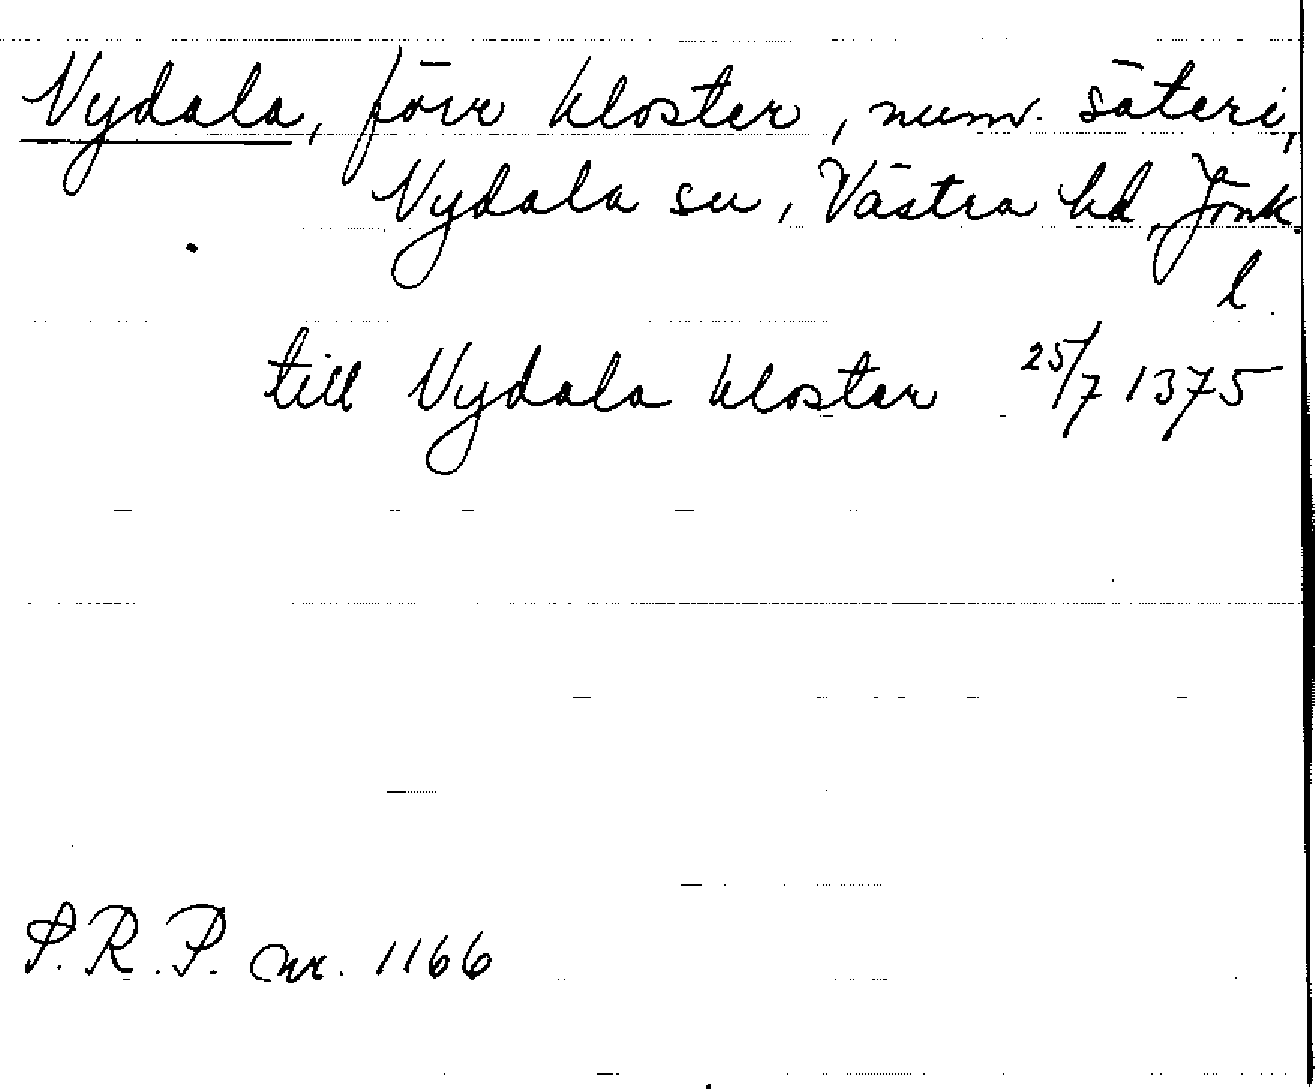 Nydala, förr kloster, numv. säteri,
Nydala sn, Västra hd, Jönk.
l.
till Nydala kloster 25/7 1375
S.R.P. nr. 1166